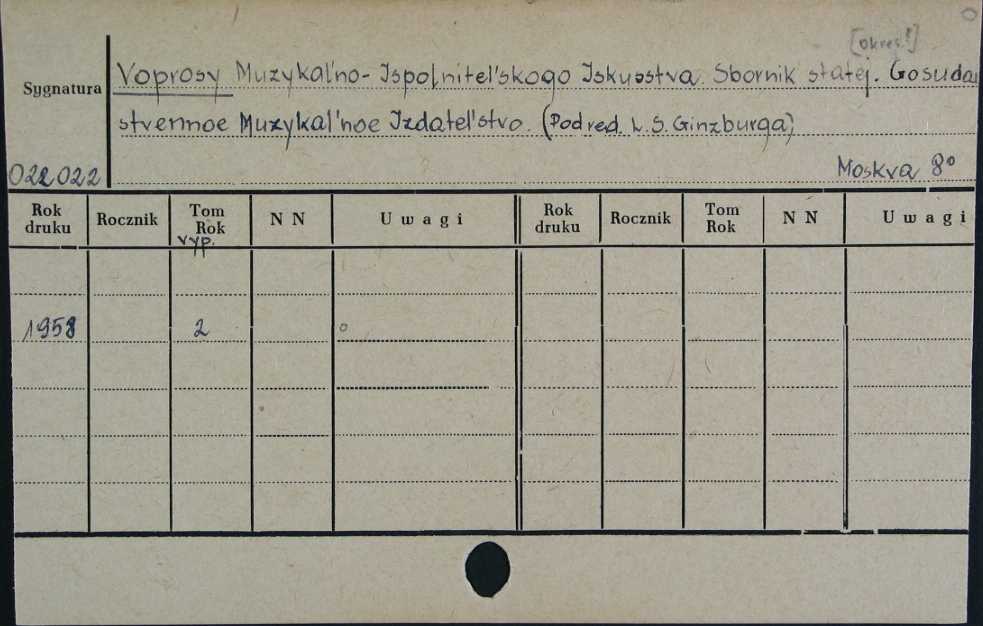 [okres!]
Voprosy Muzykal'no-Ispolnitel'skogo Iskusstva. Sbornik statej. Gosudar
Sygnatura
stvennoe Muzykal'noe Izdatel'stvo. (Pod red. L. S. Ginzburga)
022022 Moskva 8°
Rok druku Rocznik Tom Rok vyp. N N Uwagi Rok druku Rocznik Tom Rok N N Uwagi
1958 2